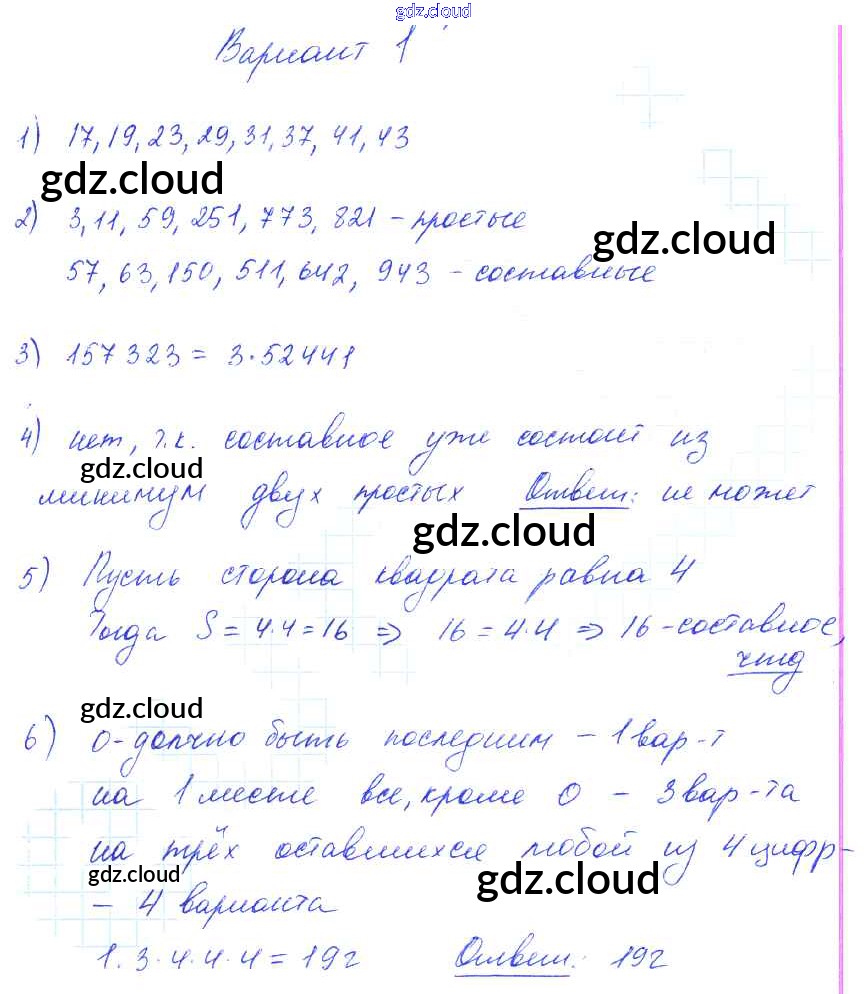 gdz.cloud
Вариант 1
1) 17, 19, 23, 29, 31, 37, 41, 43
gdz.cloud
2) 3, 11, 59, 251, 773, 821 – простые
gdz.cloud
57, 63, 150, 511, 642, 943 – составные
3) 157323 = 3·52441
4) нет, т.к. составное уже состоит из
gdz.cloud
минимум двух простых Ответ: не может
gdz.cloud
5) Пусть сторона квадрата равна 4
Тогда S = 4·4 = 16 ⇒ 16 = 4·4 ⇒ 16 – составное,
чтд
gdz.cloud
6) 0 – должно быть последним – 1 вар-т
на 1 месте все, кроме 0 – 3 вар-та
на трёх оставшихся любой из 4 цифр –
gdz.cloud
gdz.cloud
– 4 варианта
1·3·4·4·4 = 192 Ответ: 192